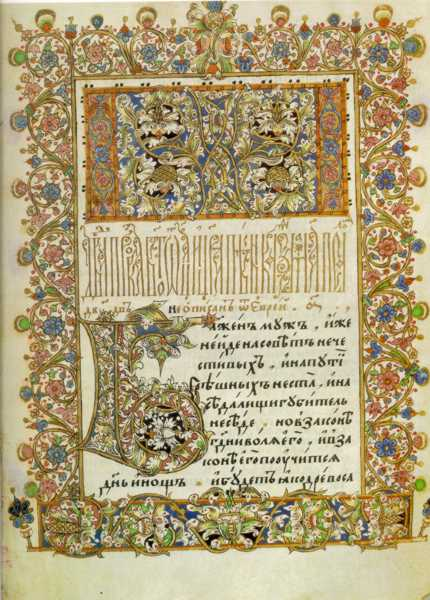 не описанъ ѿ еврей
Блаженъ мужъ , иже
не иде на совѣтъ нече
стивыхъ , и на пути
грѣшныхъ не ста , и на
сѣдалищи губитель
не сѣде . но в законѣ
гдни воля его , и в за
конѣ его поучится
днь и нощь . и будетъ яко древо са